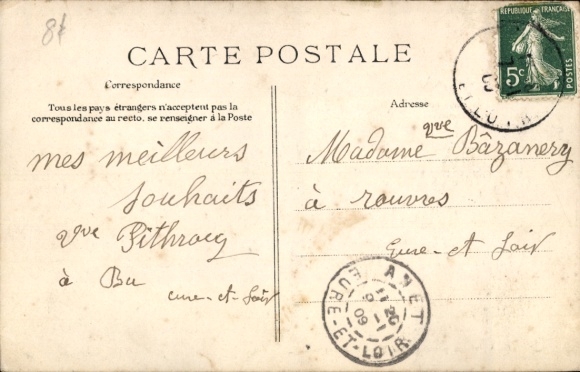 8f
CARTE POSTALE
Correspondance
Tous les pays étrangers n'acceptent pas la
correspondance au recto, se renseigner à la Poste
mes meilleurs
souhaits
Vve
à Bu
eure-et-Loir
REPUBLIQUE FRANÇAISE
5c
POSTES
Adresse
vve
Madame Bâzanery
à rouvres
Eure-et-Loir
ANET
EURE-ET-LOIR
09